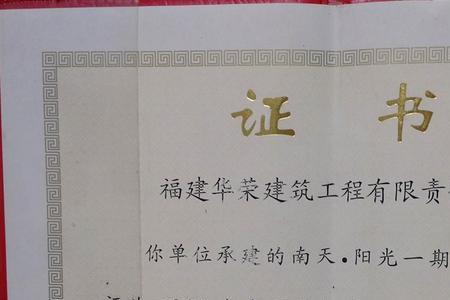 证书
福建华荣建筑工程有限责
你单位承建的南天·阳光一期